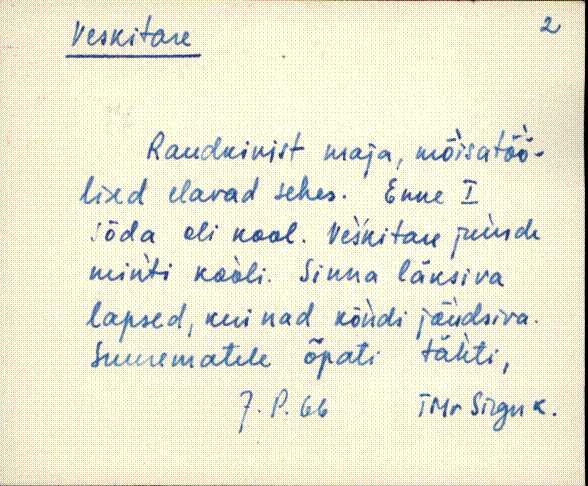 Veskitare
2
Raudkivist maja, mõisatöö-
lised elavad sehes. Enne I
sõda oli kool. Veskitare juurde
minti kooli. Sinna läksiva
lapsed, kui nad kõndi jõudsiva.
Suurematele õpati tähti,
J. P. 66 TMr Sirgu k.